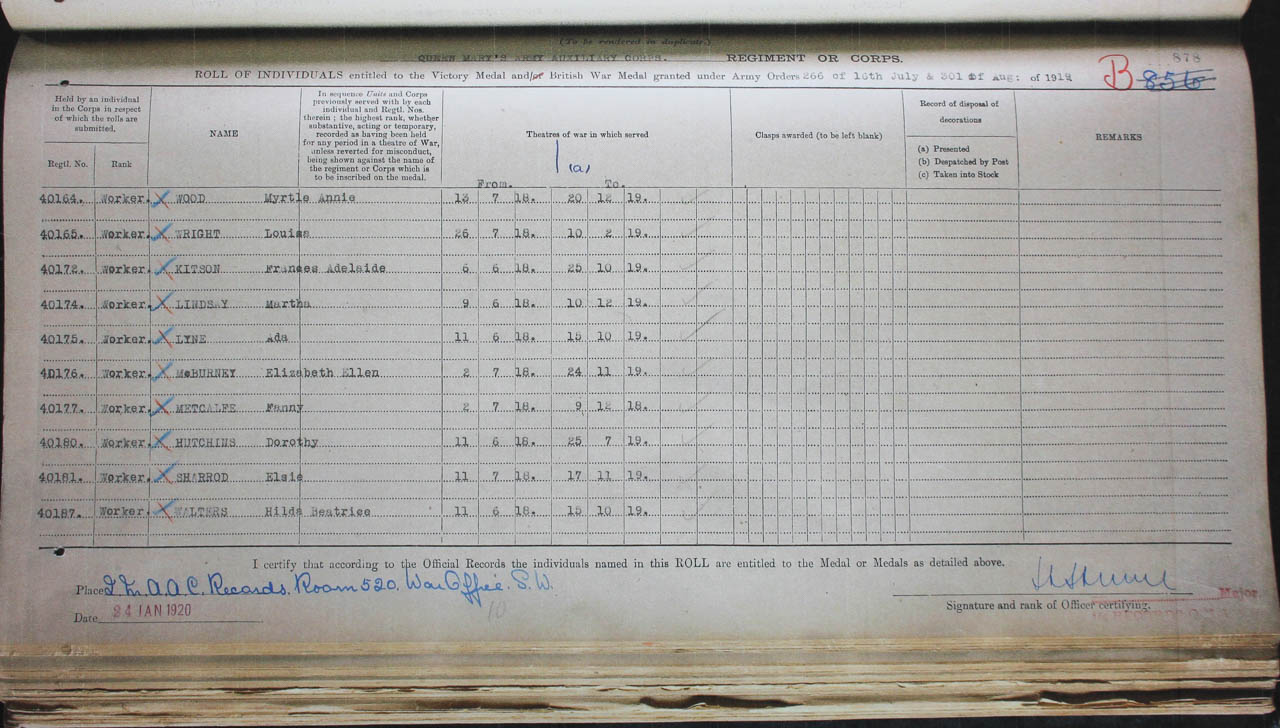 (To be rendered in duplicate.)
QUEEN MARY'S ARMY AUXILIARY CORPS. REGIMENT OR CORPS. 878
ROLL OF INDIVIDUALS entitled to the Victory Medal and/or British War Medal granted under Army Orders 266 of 16th July & 301 of Aug: of 1919 B 856
Held by an individual in the Corps in respect of which the rolls are submitted.
Regtl. No. Rank
NAME
In sequence Units and Corps
previously served with by each
individual and Regtl. Nos.
therein; the highest rank, whether
substantive, acting or temporary,
recorded as having been held
for any period in a theatre of War,
unless reverted for misconduct,
being shown against the name of
the regiment or Corps which is
to be inscribed on the medal.
Theatres of war in which served
1 (a)
From. To.
Clasps awarded (to be left blank)
Record of disposal of
decorations
(a) Presented
(b) Despatched by Post
(c) Taken into Stock
REMARKS
40164. Worker. WOOD Myrtle Annie 13 7 18. 20 12 19.
40165. Worker. WRIGHT Louisa 26 7 18. 10 2 19.
40172. Worker. KITSON Frances Adelaide 6 6 18. 25 10 19.
40174. Worker. LINDSAY Martha 9 6 18. 10 12 19.
40175. Worker. LYNE Ada 11 6 18. 15 10 19.
40176. Worker. McBURNEY Elizabeth Ellen 2 7 18. 24 11 19.
40177. Worker. METCALFE Fanny 2 7 18. 9 12 18.
40180. Worker. HUTCHINS Dorothy 11 6 18. 25 7 19.
40181. Worker. SHARROD Elsie 11 7 18. 17 11 19.
40187. Worker. WALTERS Hilda Beatrice 11 6 18. 15 10 19.
I certify that according to the Official Records the individuals named in this ROLL are entitled to the Medal or Medals as detailed above.
Place Q.M.A.A.C. Records. Room 520. War Office. S.W.
Major.
Date 24 JAN 1920 10
Signature and rank of Officer certifying.